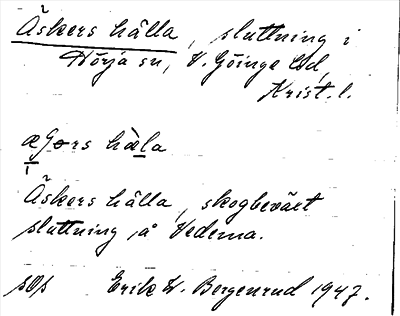 Åskers hälla, sluttning i
Hörja sn, V. Göinge hd,
Krist. l.
Åskers hälla, skogbeväxt
sluttning å Vedema.
Erik W. Bergenrud 1947.